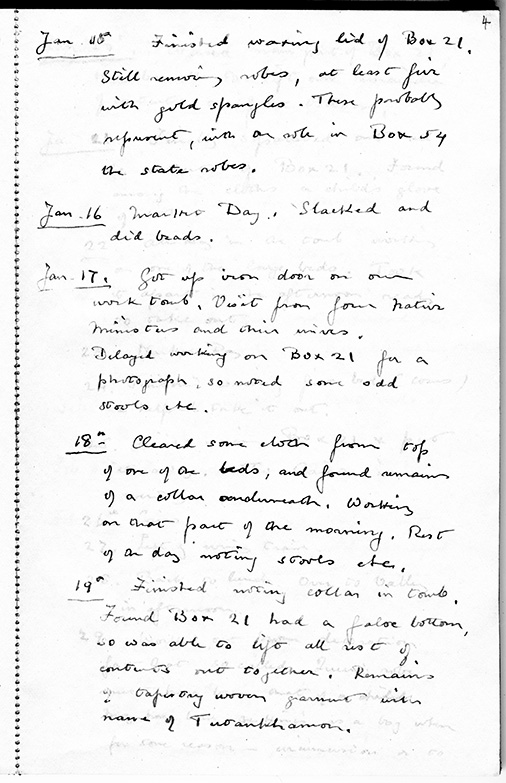 4
Jan. 15th Finished waxing lid of Box 21.
Still removing robes, at least five
with gold spangles. These probably
represent, with an robe in Box 54
the state robes.
Jan. 16 Market Day. Slacked and
did beads.
Jan. 17. Got up iron door on our
work tomb. Visit from four native
ministers and their wives.
Delayed working on Box 21 for a
photograph, so noted some odd
stools etc.
18th Cleared some cloth from top
of one of the beds, and found remains
of a collar underneath. Working
on that part of the morning. Rest
of the day noting stools etc.
19th Finished noting collar in tomb.
Found Box 21 had a false bottom,
so was able to lift all rest of
contents out together. Remains
of tapestry woven garment with
name of Tutankhamon.